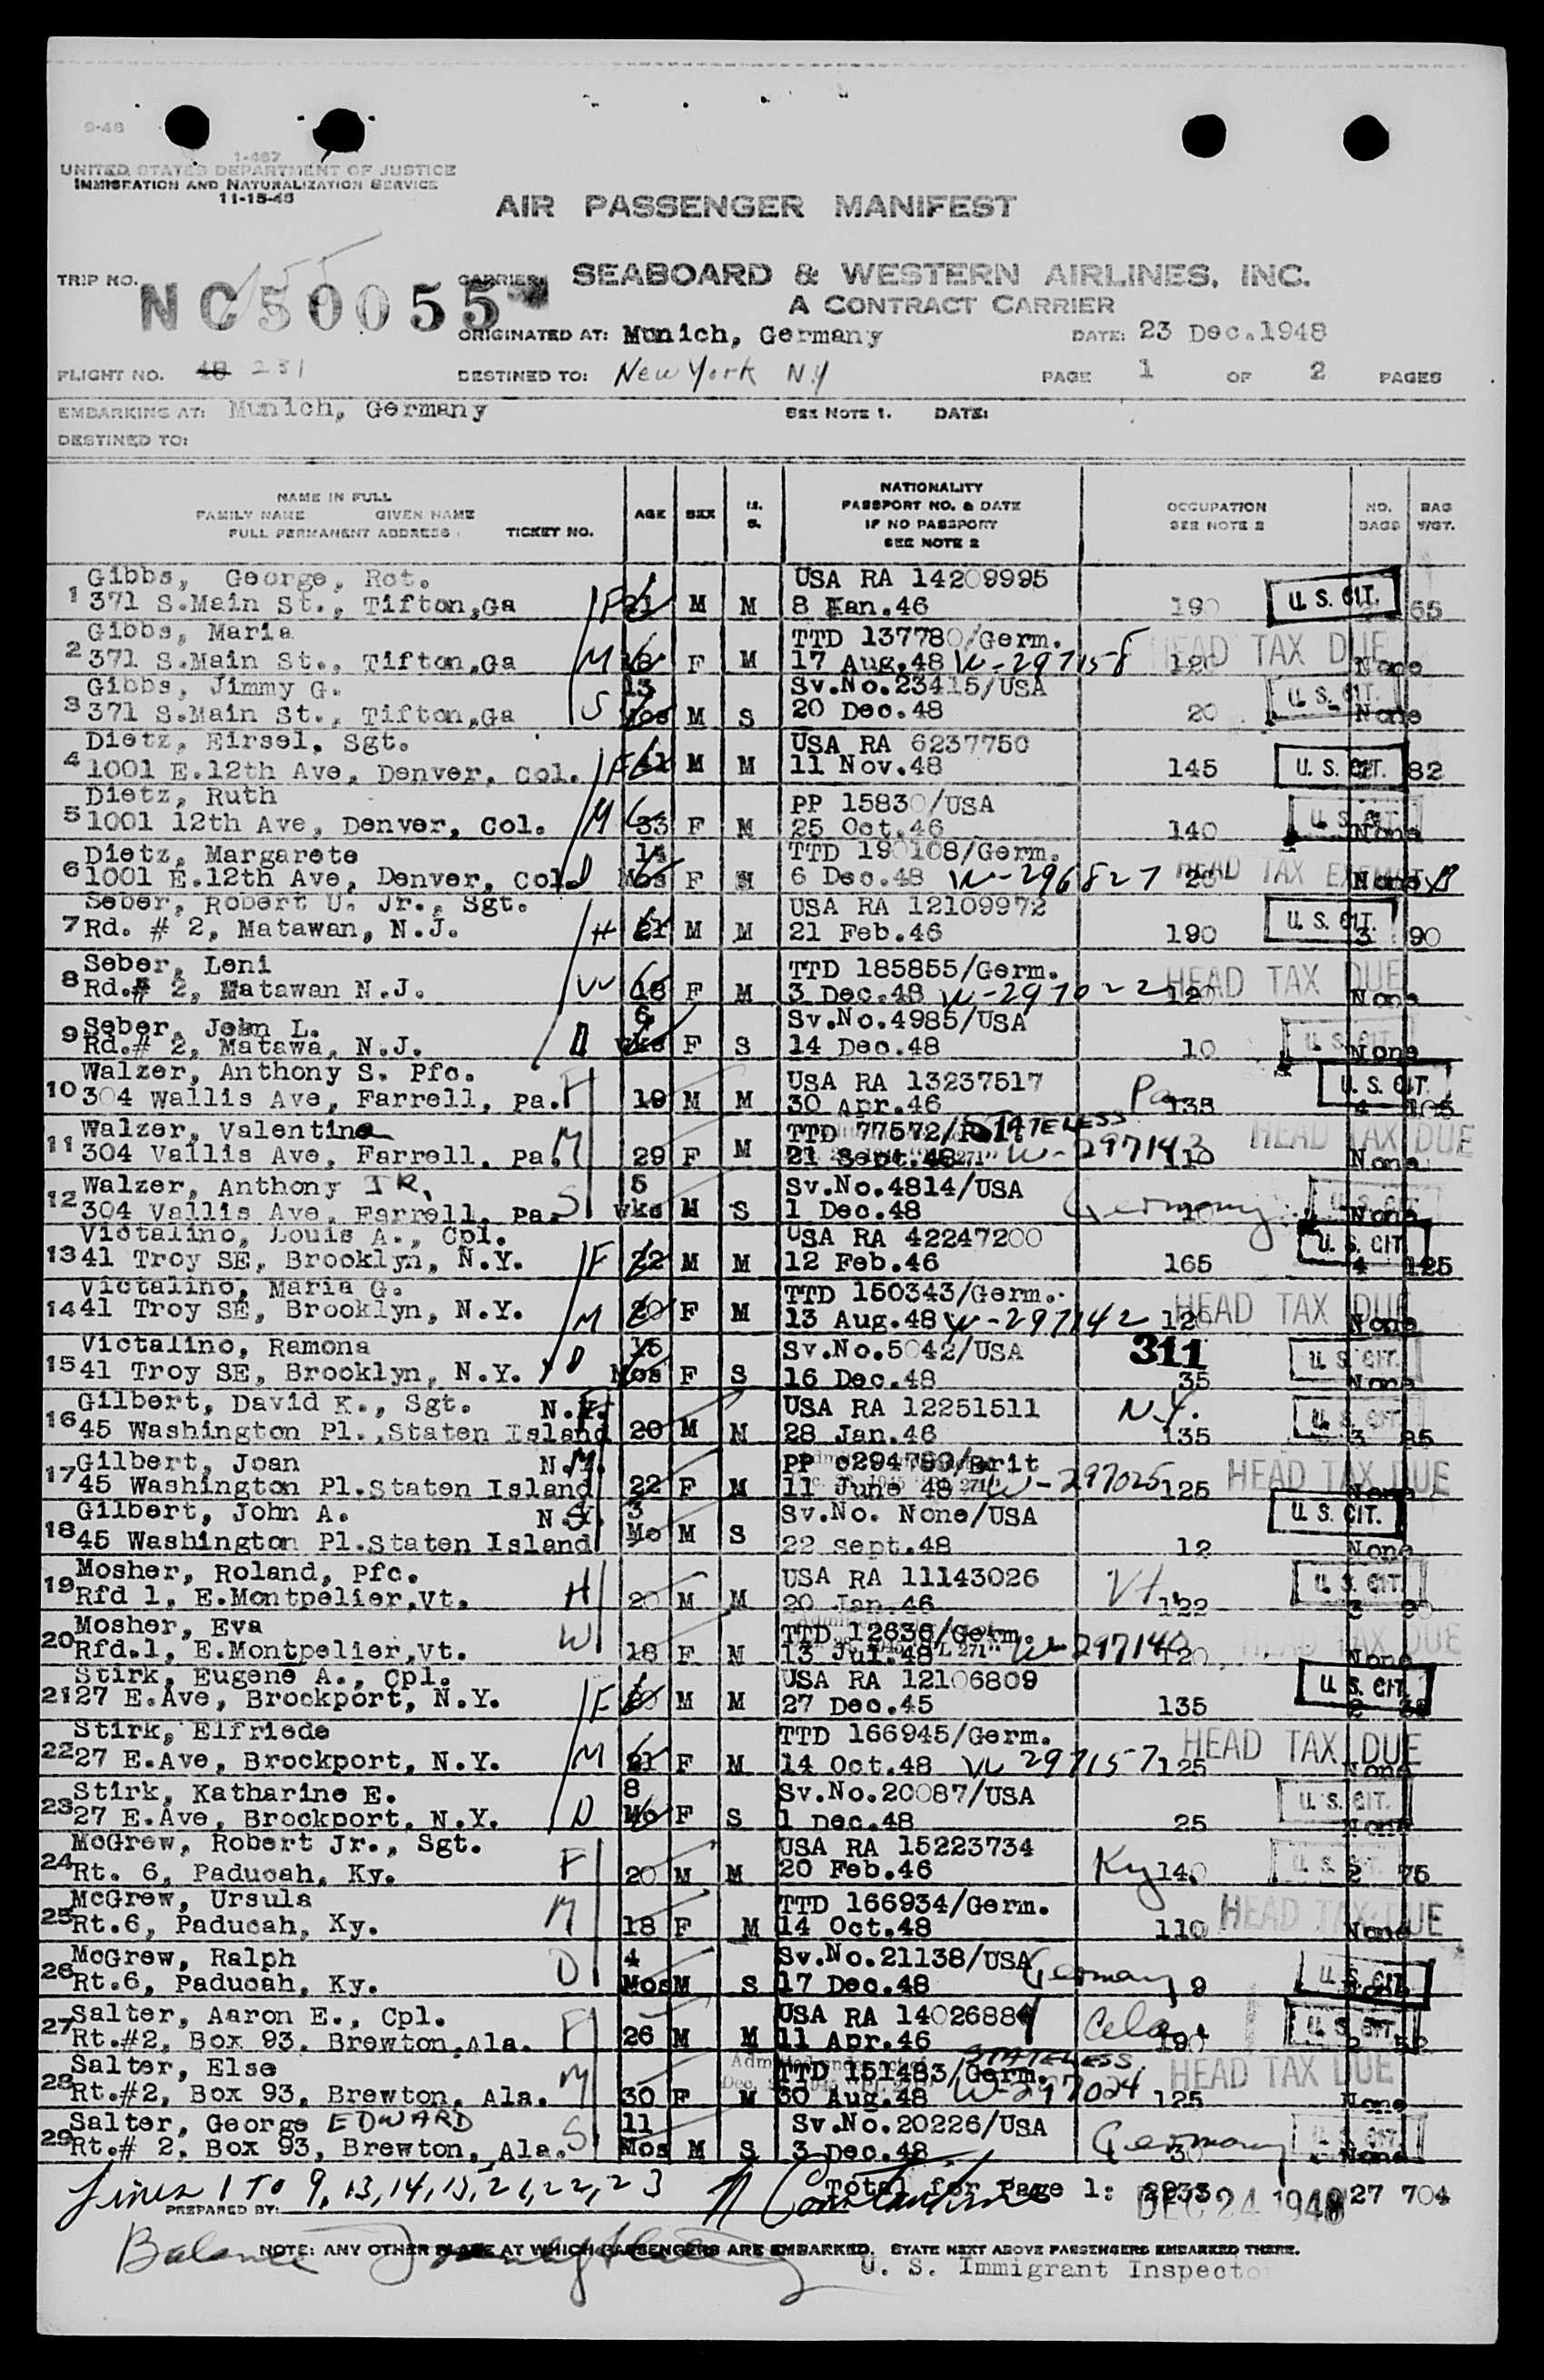 9-48
1-467
UNITED STATES DEPARTMENT OF JUSTICE
IMMIGRATION AND NATURALIZATION SERVICE
11-15-46
AIR PASSENGER MANIFEST
TRIP NO. NC50055 CARRIER: SEABOARD & WESTERN AIRLINES, INC.
A CONTRACT CARRIER
ORIGINATED AT: Munich, Germany DATE: 23 Dec.1948
FLIGHT NO. 48 231 DESTINED TO: New York N.Y PAGE 1 OF 2 PAGES
EMBARKING AT: Munich, Germany SEE NOTE 1. DATE:
DESTINED TO:
NAME IN FULL
FAMILY NAME GIVEN NAME
FULL PERMANENT ADDRESS TICKET NO. AGE SEX M. S. NATIONALITY
PASSPORT NO. & DATE
IF NO PASSPORT
SEE NOTE 2 OCCUPATION
SEE NOTE 2 NO. BAGS BAG WGT.
Gibbs, George, Rct. USA RA 14209995
1 371 S.Main St., Tifton,Ga F 21 M M 8 Jan.46 190 U.S. CIT. 65
Gibbs, Maria TTD 137780/Germ. HEAD TAX DUE
2 371 S.Main St., Tifton,Ga M F M 17 Aug.48 W-297158 120 None
Gibbs, Jimmy G. 13 Sv.No.23415/USA U.S. CIT.
3 371 S.Main St., Tifton,Ga S Mos M S 20 Dec.48 20 None
Dietz, Eirsel, Sgt. USA RA 6237750
4 1001 E.12th Ave, Denver, Col. F 41 M M 11 Nov.48 145 U.S. CIT. 2 82
Dietz, Ruth PP 15830/USA U.S. CIT.
5 1001 12th Ave, Denver, Col. M 33 F M 25 Oct.46 140 None
Dietz, Margarete 14 TTD 190108/Germ.
6 1001 E.12th Ave, Denver, Col. D Mos F S 6 Dec.48 W-296827 20 HEAD TAX EXEMPT None
Seber, Robert U. Jr., Sgt. USA RA 12109972
7 Rd. # 2, Matawan, N.J. H 21 M M 21 Feb.46 190 U.S. CIT. 3 90
Seber, Leni TTD 185855/Germ. HEAD TAX DUE
8 Rd.# 2, Matawan N.J. W 18 F M 3 Dec.48 W-297022 120 None
Seber, Joan L. 6 Sv.No.4985/USA U.S. CIT.
9 Rd.# 2, Matawa, N.J. D wks F S 14 Dec.48 10 None
Walzer, Anthony S. Pfc. USA RA 13237517 Pa U.S. CIT.
10 304 Wallis Ave, Farrell, Pa. H 19 M M 30 Apr.46 135 4 105
Walzer, Valentina TTD 77572/Pol. STATELESS HEAD TAX DUE
11 304 Vallis Ave, Farrell, Pa. M 29 F M 21 Sept.48 W-297143 110 None
Walzer, Anthony JR. 5 Sv.No.4814/USA Germany U.S. CIT.
12 304 Vallis Ave, Farrell, Pa. S wks M S 1 Dec.48 None
Victalino, Louis A., Cpl. USA RA 42247200 U.S. CIT.
13 41 Troy SE, Brooklyn, N.Y. F 22 M M 12 Feb.46 165 4 125
Victalino, Maria G. TTD 150343/Germ. HEAD TAX DUE
14 41 Troy SE, Brooklyn, N.Y. M 20 F M 13 Aug.48 W-297142 120 None
Victalino, Ramona 15 Sv.No.5042/USA 311 U.S. CIT.
15 41 Troy SE, Brooklyn, N.Y. D Mos F S 16 Dec.48 35 None
Gilbert, David K., Sgt. N.Y. USA RA 12251511 N.Y. U.S. CIT.
16 45 Washington Pl.,Staten Island 20 M M 28 Jan.46 135 3 85
Gilbert, Joan N.Y. PP 0294789/Brit HEAD TAX DUE
17 45 Washington Pl.Staten Island 22 F M 11 June 48 W-297025 125 None
Gilbert, John A. N.Y. 3 Sv.No. None/USA U.S. CIT.
18 45 Washington Pl.Staten Island Mo M S 22 Sept.48 12 None
Mosher, Roland, Pfc. USA RA 11143026 Vt. U.S. CIT.
19 Rfd 1, E.Montpelier,Vt. H 20 M M 20 Jan.46 122 3 90
Mosher, Eva TTD 12636/Germ. HEAD TAX DUE
20 Rfd.1, E.Montpelier,Vt. W 18 F M 13 Jul.48 W-297140 120 None
Stirk, Eugene A., Cpl. USA RA 12106809 U.S. CIT.
21 27 E.Ave, Brockport, N.Y. F M M 27 Dec.45 135 2
Stirk, Elfriede TTD 166945/Germ. HEAD TAX DUE
22 27 E.Ave, Brockport, N.Y. M 21 F M 14 Oct.48 W 297157 125 None
Stirk, Katharine E. 8 Sv.No.20087/USA U.S. CIT.
23 27 E.Ave, Brockport, N.Y. D Mo F S 1 Dec.48 25 None
McGrew, Robert Jr., Sgt. USA RA 15223734 Ky U.S. CIT.
24 Rt. 6, Paducah, Ky. F 20 M M 20 Feb.46 140 2 75
McGrew, Ursula TTD 166934/Germ. HEAD TAX DUE
25 Rt.6, Paducah, Ky. M 18 F M 14 Oct.48 110 None
McGrew, Ralph 4 Sv.No.21138/USA Germany U.S. CIT.
26 Rt.6, Paducah, Ky. D Mos M S 17 Dec.48 9
Salter, Aaron E., Cpl. USA RA 14026884 U.S. CIT.
27 Rt.#2, Box 93, Brewton,Ala. F 26 M M 11 Apr.46 190 2 52
Salter, Else TTD 151483/Germ. STATELESS HEAD TAX DUE
28 Rt.#2, Box 93, Brewton, Ala. M 30 F M 30 Aug.48 W-297024 125 None
Salter, George EDWARD 11 Sv.No.20226/USA Germany U.S. CIT.
29 Rt.# 2, Box 93, Brewton, Ala. S Mos M S 3 Dec.48 30 None
Lines 1 TO 9, 13, 14, 15, 21, 22, 23 Total for Page 1: 2933 27 704
PREPARED BY: DEC 24 1948
Balance
NOTE: ANY OTHER PLACE AT WHICH PASSENGERS ARE EMBARKED. STATE NEXT ABOVE PASSENGERS EMBARKED THERE.
U. S. Immigrant Inspector